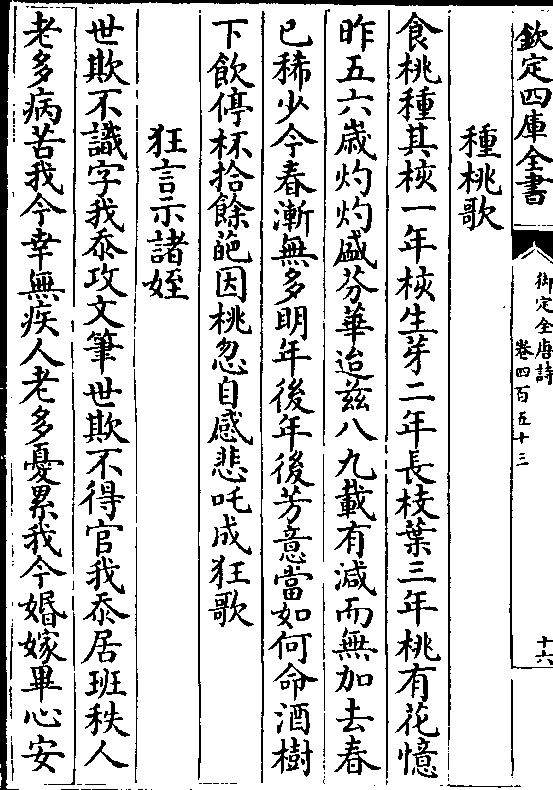 欽定四庫全書
御定全唐詩
卷四百五十三
十六
種桃歌
食桃種其核一年核生芽二年長枝葉三年桃有花憶
昨五六歲灼灼盛芬華迨兹八九載有減而無加去春
已稀少今春漸無多明年後年後芳意當如何命酒樹
下飲停杯拾餘葩因桃忽自感悲吒成狂歌
狂言示諸姪
世欺不識字我忝攻文筆世欺不得官我忝居班秩人
老多病苦我今幸無疾人老多憂累我今婚嫁畢心安